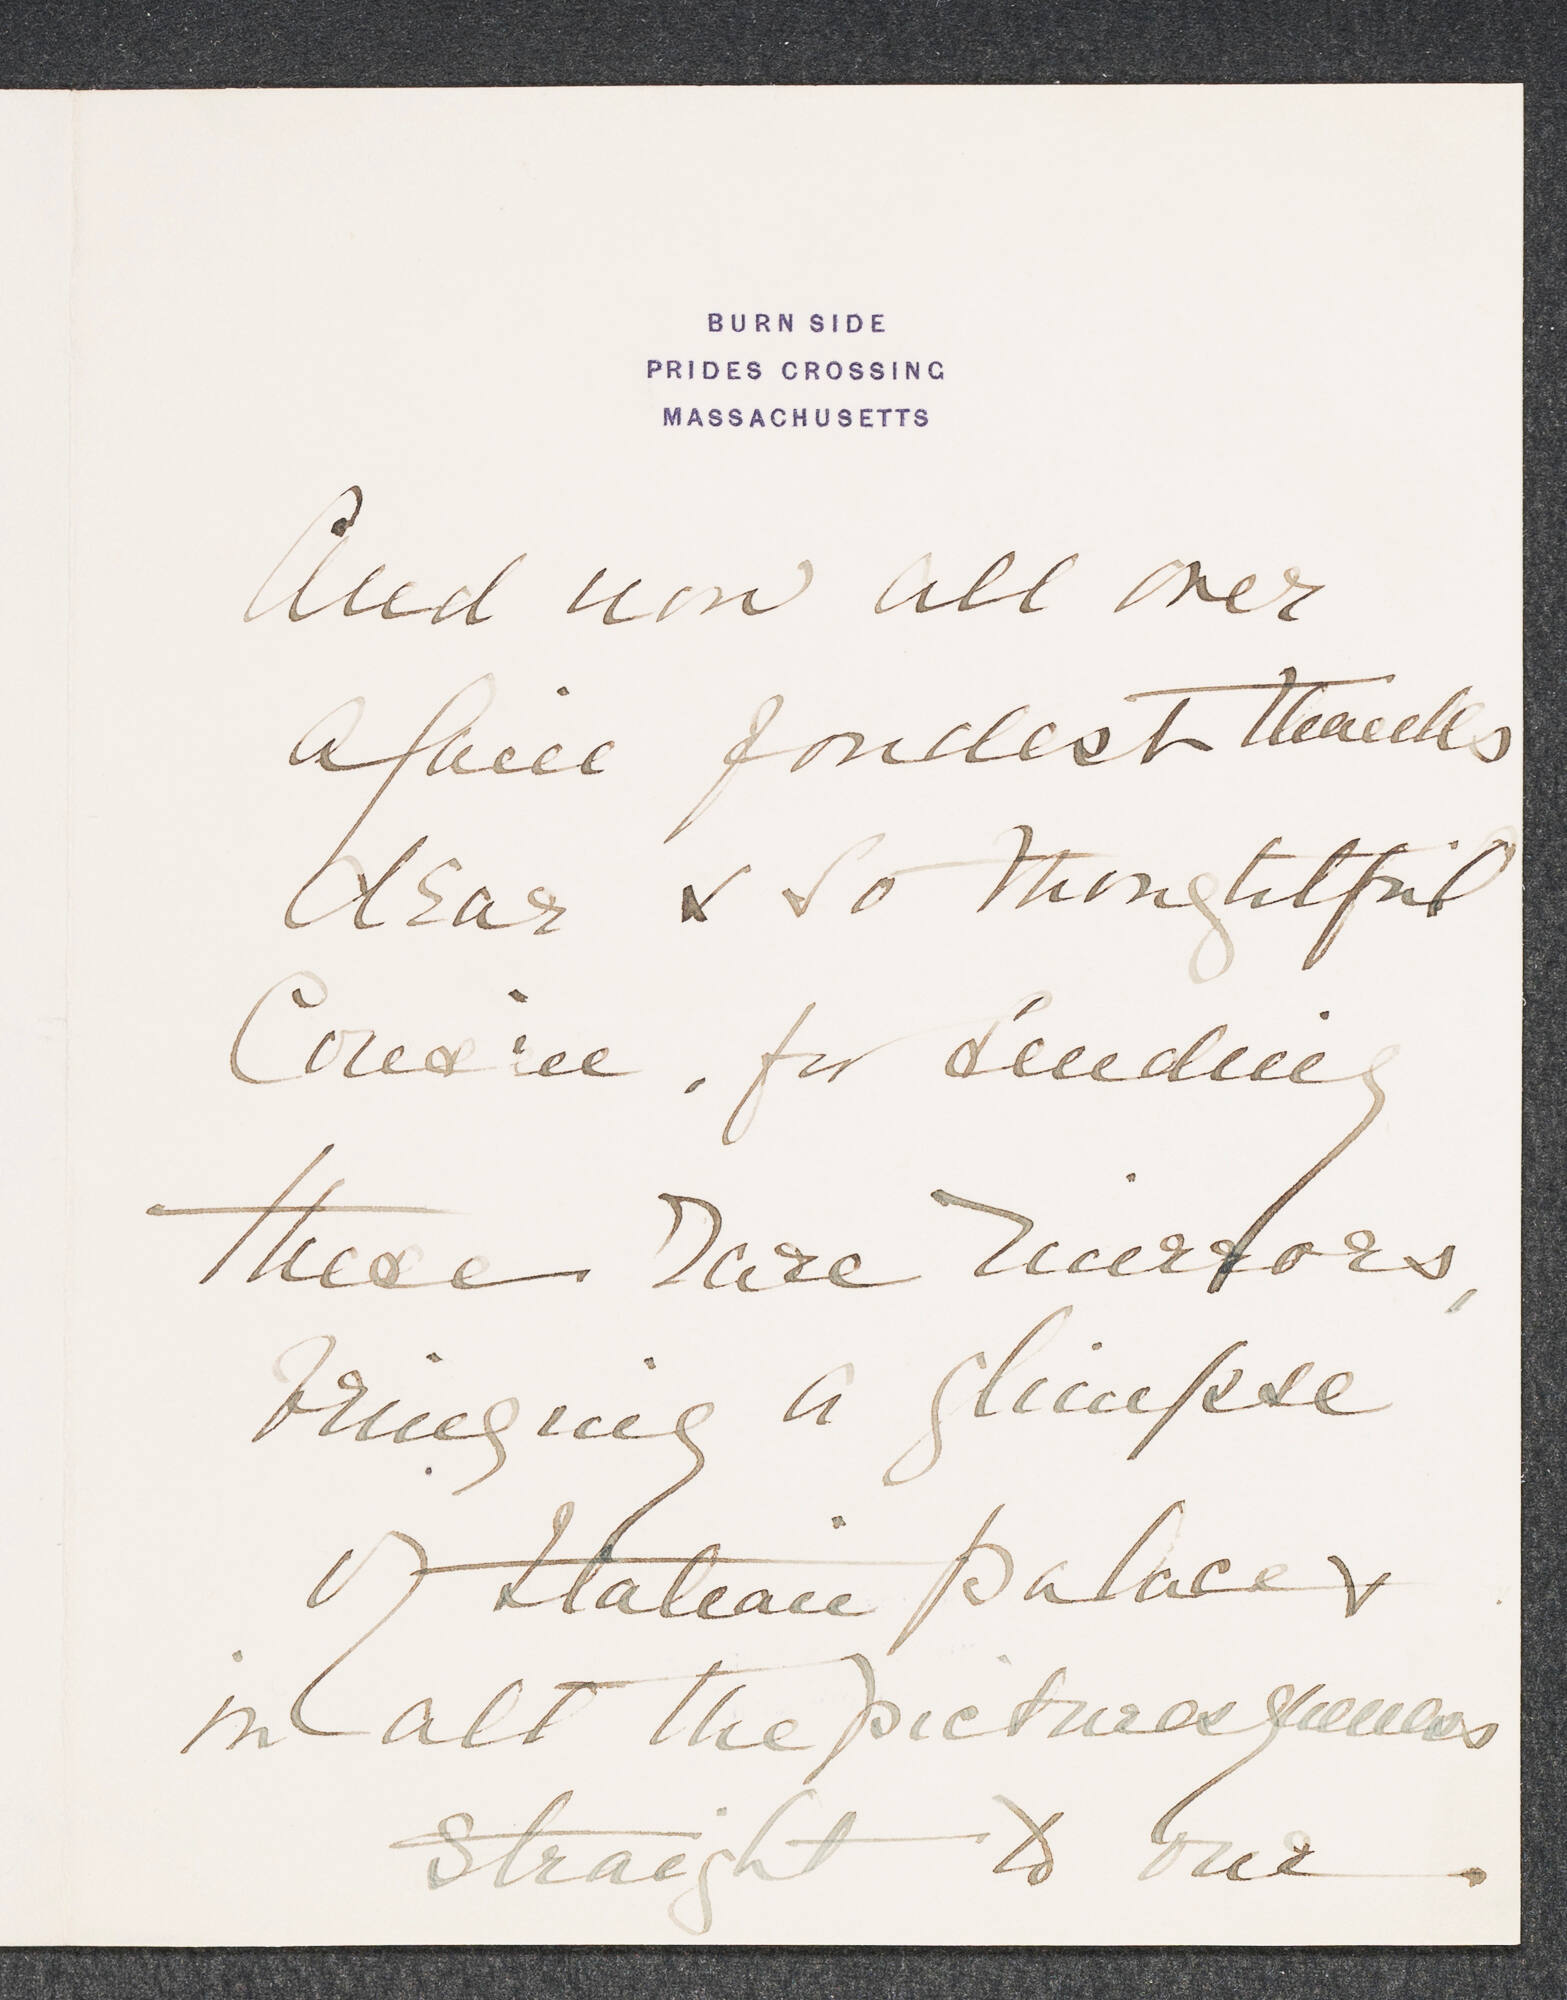 BURN SIDE
PRIDES CROSSING
MASSACHUSETTS
And now all over
again fondest thanks
dear & so thoughtful
Cousin, for lending
these rare mirrors,
bringing a glimpse
of Italian palaces
in all the picturesqueness
straight to our